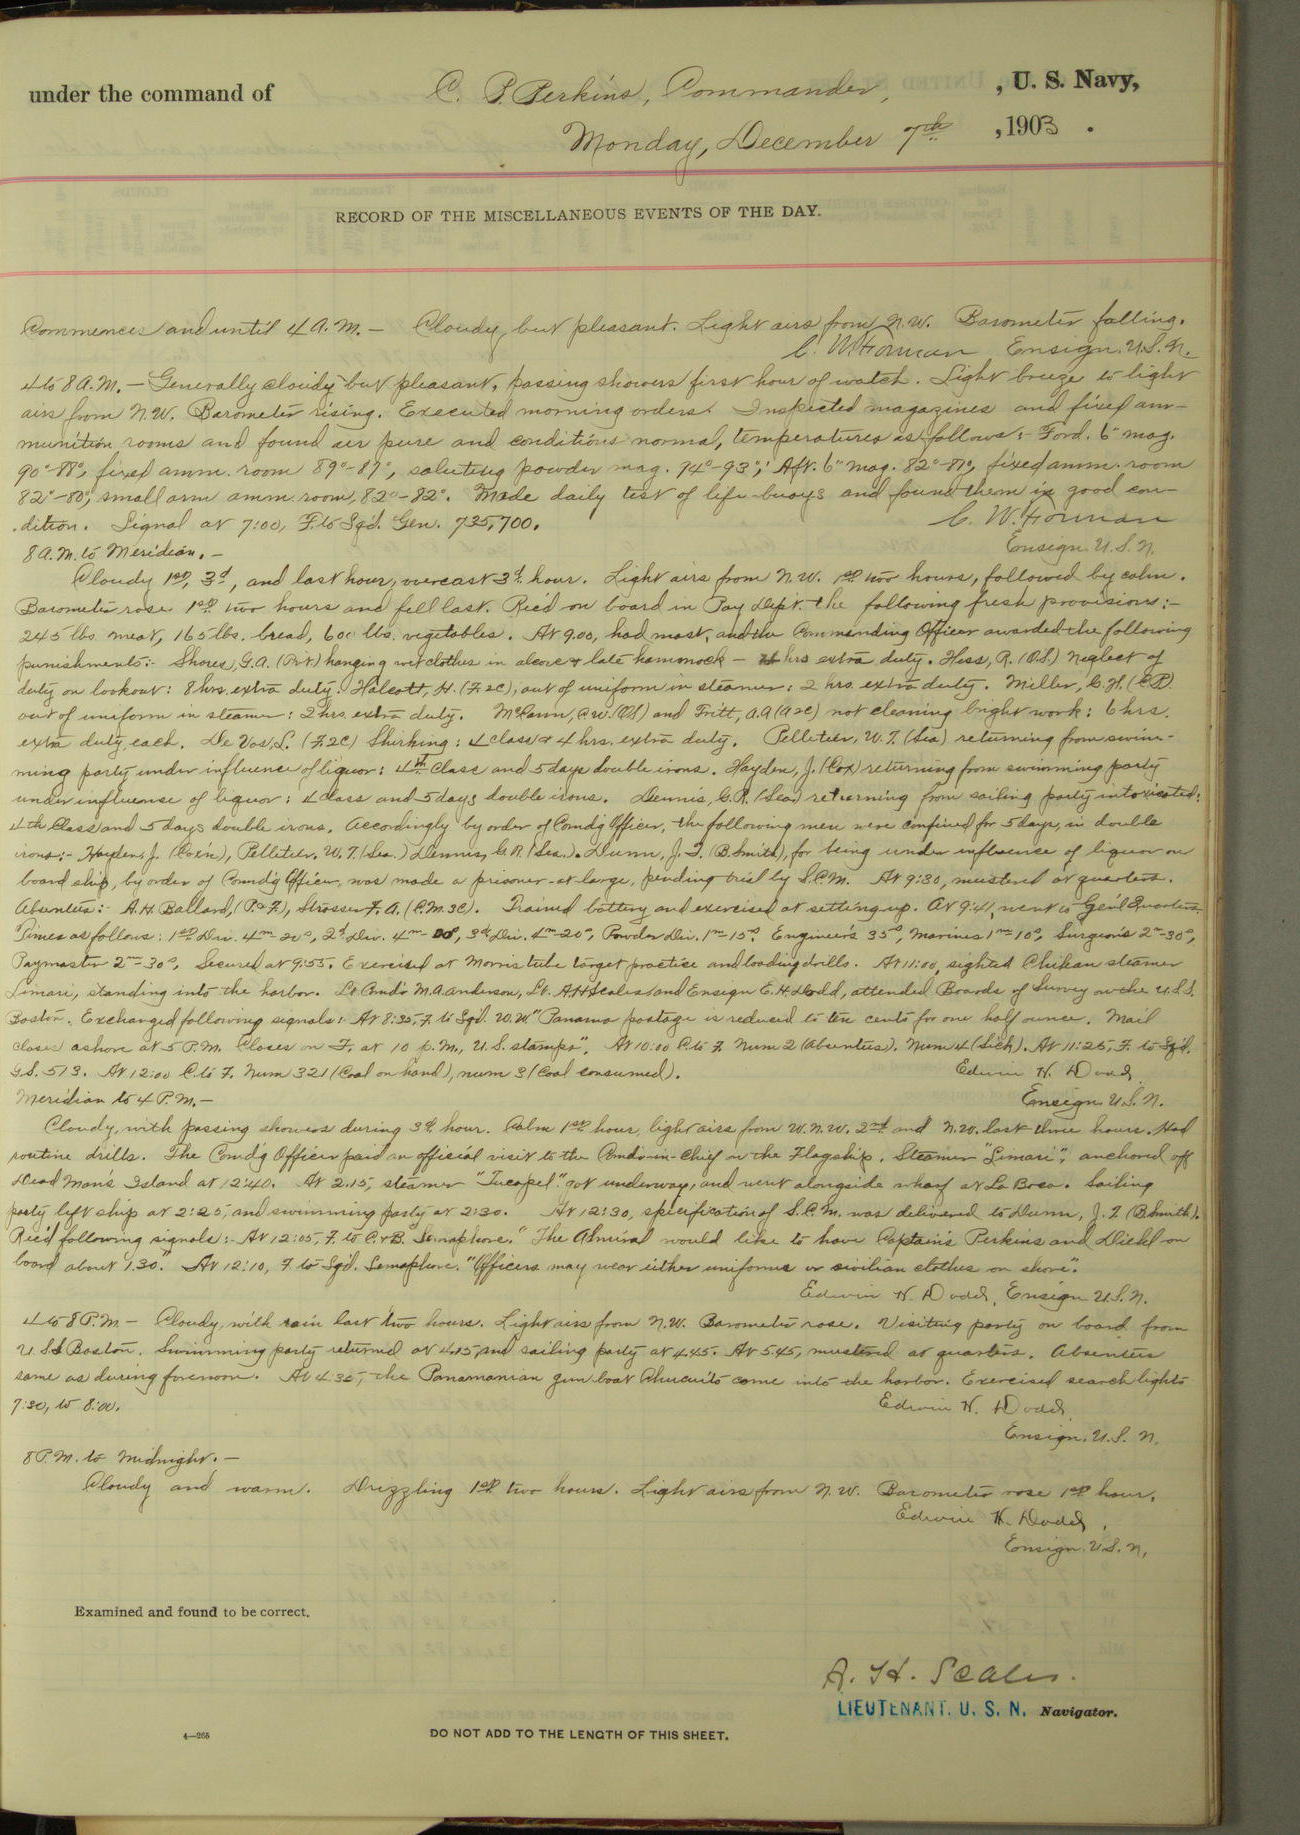 under the command of C. P. Perkins, Commander, , U. S. Navy,
Monday, December 7th , 1903 .
RECORD OF THE MISCELLANEOUS EVENTS OF THE DAY.
Commences and until 4 A.M. — Cloudy, but pleasant. Light airs from N.W. Barometer falling.
C. W. Forman Ensign, U.S.N.
4 to 8 A.M. — Generally cloudy but pleasant, passing showers first hour of watch. Light breeze to light
airs from N.W. Barometer rising. Executed morning orders. Inspected magazines and fixed am-
munition rooms and found air pure and conditions normal, temperatures as follows:- Ford. 6" mag.
90°-88°, fixed amm. room 89°-87°, saluting powder mag. 94°-93°; Aft. 6" mag. 82°-81°, fixed amm. room
82°-80°, small arm amm. room, 82°-82°. Made daily test of life-buoys and found them in good con-
dition. Signal at 7:00, F. to Sq'd. Gen. 735,700.
C. W. Forman
Ensign U.S.N.
8 A.M. to Meridian. —
Cloudy 1st, 3d, and last hour, overcast 3d hour. Light airs from N.W. 1st two hours, followed by calm.
Barometer rose 1st two hours and fell last. Rec'd on board in Pay Dep't. the following fresh provisions:-
245 lbs. meat, 165 lbs. bread, 600 lbs. vegetables. At 9.00, had mast, and the Commanding Officer awarded the following
punishments:- Shores, G.A. (Prt) hanging wet clothes in alcove & late hammock — hrs extra duty. Hess, R. (O.S.) Neglect of
duty on lookout: 8 hrs. extra duty. Halcott, H. (F.2C), out of uniform in steamer: 2 hrs. extra duty. Miller, C.H. (C.P.)
out of uniform in steamer: 2 hrs. extra duty. McCann, C.W. (OS) and Fritt, A.A (A2C) not cleaning bright work: 6 hrs.
extra duty each. De Vos, L. (F.2C) Shirking: 4 class & 4 hrs. extra duty. Pelletier, W. T. (Sea) returning from swim-
ming party under influence of liquor: 4th Class and 5 days double irons. Hayden, J. (Cox) returning from swimming party
under influence of liquor: 4 class and 5 days double irons. Dennis, G.R. (Sea) returning from sailing party intoxicated:
4th Class and 5 days double irons. Accordingly by order of Comd'g Officer, the following men were confined for 5 days, in double
irons:- Hayden, J. (Cox'n), Pelletier. W.T. (Sea.) Dennis, G.R. (Sea.). Dunn, J. F. (B.Smith), for being under influence of liquor on
board ship, by order of Comd'g Officer, was made a prisoner-at-large, pending trial by S.C.M. At 9:30, mustered at quarters.
Absentees:- A.H. Ballard, (P.&F.), Strosser F. A. (C.M.3C). Trained battery and exercised at setting up. At 9:41, went to Gen'l Quarters.
Times as follows: 1st Div. 4m-20s, 2d Div. 4m- , 3d Div. 4m-20s, Powder Div. 1m-15s, Engineer's 35s, Marines 1m-10s, Surgeon's 2m-30s,
Paymaster 2m-30s. Secured at 9:55. Exercised at Morris tube target practice and loading drills. At 11:00, sighted Chilean steamer
Limari, standing into the harbor. Lt. Comd'r M.A. Anderson, Lt. A.H. Scales, and Ensign E.H. Dodd, attended Boards of Survey on the U.S.S.
Boston. Exchanged following signals:- At 8:35, F. to Sq'd. W.W. "Panama postage is reduced to ten cents for one half ounce. Mail
closes ashore at 5 P.M. Closes on F. at 10 p.m., U.S. stamps". At 10:00 C. to F. Num 2 (Absentees). Num 4 (Sick). At 11:25, F. to Sq'd.
G.S. 513. At 12:00 C. to F. Num 321 (Coal on hand), num 31 (Coal consumed).
Edwin H. Dodd,
Ensign U.S.N.
Meridian to 4 P.M. —
Cloudy, with passing showers during 3d hour. Calm 1st hour, light airs from W.N.W. 2nd and N.W. last three hours. Had
routine drills. The Comd'g Officer paid an official visit to the Comdr-in-Chief on the Flagship. Steamer "Limari", anchored off
Dead Man's Island at 12:40. At 2.15, steamer "Tucapel" got underway, and went alongside wharf at La Boca. Sailing
party left ship at 2:25, and swimming party at 2:30. At 12:30, specification of S.C.M. was delivered to Dunn, J. F. (B.Smith).
Rec'd following signals:- At 12:05, F. to C.&B. Semaphore. "The Admiral would like to have Captains Perkins and Diehl on
board about 1.30." At 12:10, F. to Sq'd. Semaphore. "Officers may wear either uniforms or civilian clothes on shore".
Edwin H. Dodd, Ensign U.S.N.
4 to 8 P.M. — Cloudy, with rain last two hours. Light airs from N.W. Barometer rose. Visiting party on board from
U.S.S Boston. Swimming party returned at 4.15, and sailing party at 4.45. At 5.45, mustered at quarters. Absentees
same as during forenoon. At 4:35, the Panamanian gun boat Chucuito came into the harbor. Exercised search lights
7:30, to 8:00.
Edwin H. Dodd,
Ensign, U.S.N.
8 P.M. to Midnight. —
Cloudy and warm. Drizzling 1st two hours. Light airs from N.W. Barometer rose 1st hour.
Edwin H. Dodd,
Ensign U.S.N.
Examined and found to be correct.
A. H. Scales.
LIEUTENANT, U. S. N. Navigator.
4—265
DO NOT ADD TO THE LENGTH OF THIS SHEET.